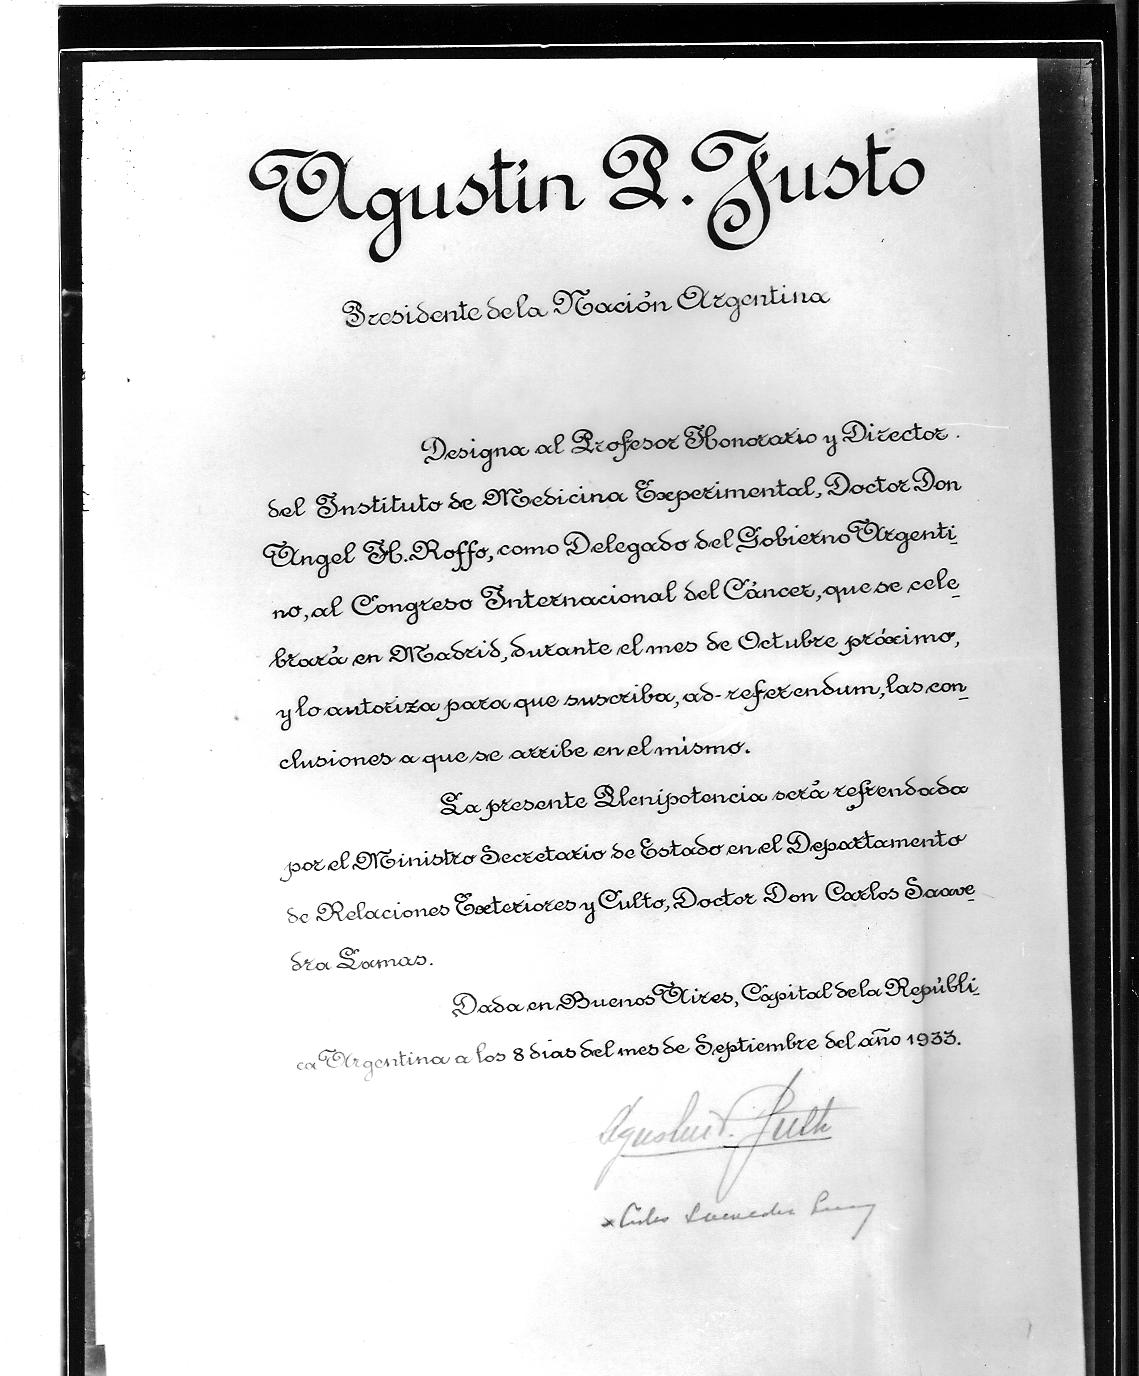 Agustín P. Justo
Presidente de la Nación Argentina
Designa al Profesor Honorario y Director
del Instituto de Medicina Experimental, Doctor Don
Angel H. Roffo, como Delegado del Gobierno Argenti-
no, al Congreso Internacional del Cáncer, que se cele-
brará en Madrid, durante el mes de Octubre próximo,
y lo autoriza para que suscriba, ad-referendum, las con-
clusiones a que se arribe en el mismo.
La presente Plenipotencia será refrendada
por el Ministro Secretario de Estado en el Departamento
de Relaciones Exteriores y Culto, Doctor Don Carlos Saave-
dra Lamas.
Dada en Buenos Aires, Capital de la Repúbli-
ca Argentina a los 8 días del mes de Septiembre del año 1933.
Agustín P. Justo
Carlos Saavedra Lamas